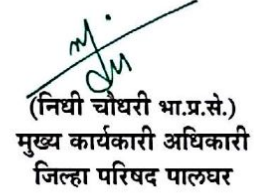 (निधी चौधरी भा.प्र.से.)
मुख्य कार्यकारी अधिकारी
जिल्हा परिषद पालघर